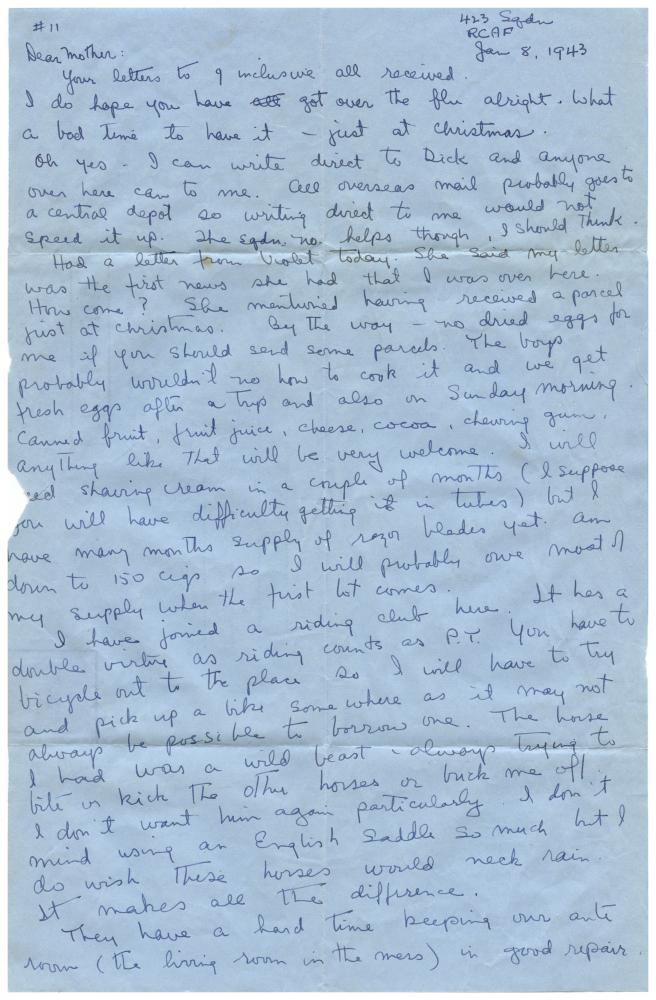 #11
423 Sqdn
RCAF
Jan 8, 1943
Dear Mother:
Your letters to 9 inclusive all received.
I do hope you have all got over the flu alright. What
a bad time to have it – just at christmas.
Oh yes – I can write direct to Dick and anyone
over here can to me. All overseas mail probably goes to
a central depot so writing direct to me would not
speed it up. The sqdn. no. helps though, I should think.
Had a letter from Violet today. She said my letter
was the first news she had that I was over here.
How come? She mentioned having received a parcel
just at christmas. By the way – no dried eggs for
me if you should send some parcels. The boys
probably wouldn't no how to cook it and we get
fresh eggs after a trip and also on Sunday morning.
Canned fruit, fruit juice, cheese, cocoa, chewing gum,
anything like that will be very welcome. I will
need shaving cream in a couple of months (I suppose
you will have difficulty getting it in tubes) but I
have many months supply of razor blades yet. Am
down to 150 cigs so I will probably owe most of
my supply when the first lot comes.
I have joined a riding club here. It has a
double virtue as riding counts as P.T. You have to
bicycle out to the place so I will have to try
and pick up a bike somewhere as it may not
always be possible to borrow one. The horse
I had was a wild beast – always trying to
bite or kick the other horses or buck me off.
I don't want him again particularly. I don't
mind using an English saddle so much but I
do wish these horses would neck rain.
It makes all the difference.
They have a hard time keeping our ante
room (the living room in the mess) in good repair.